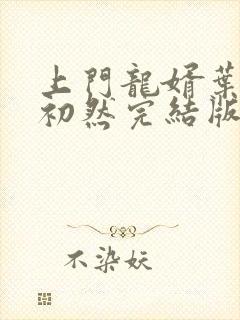 上門龍婿葉
初然完結版
不染妖